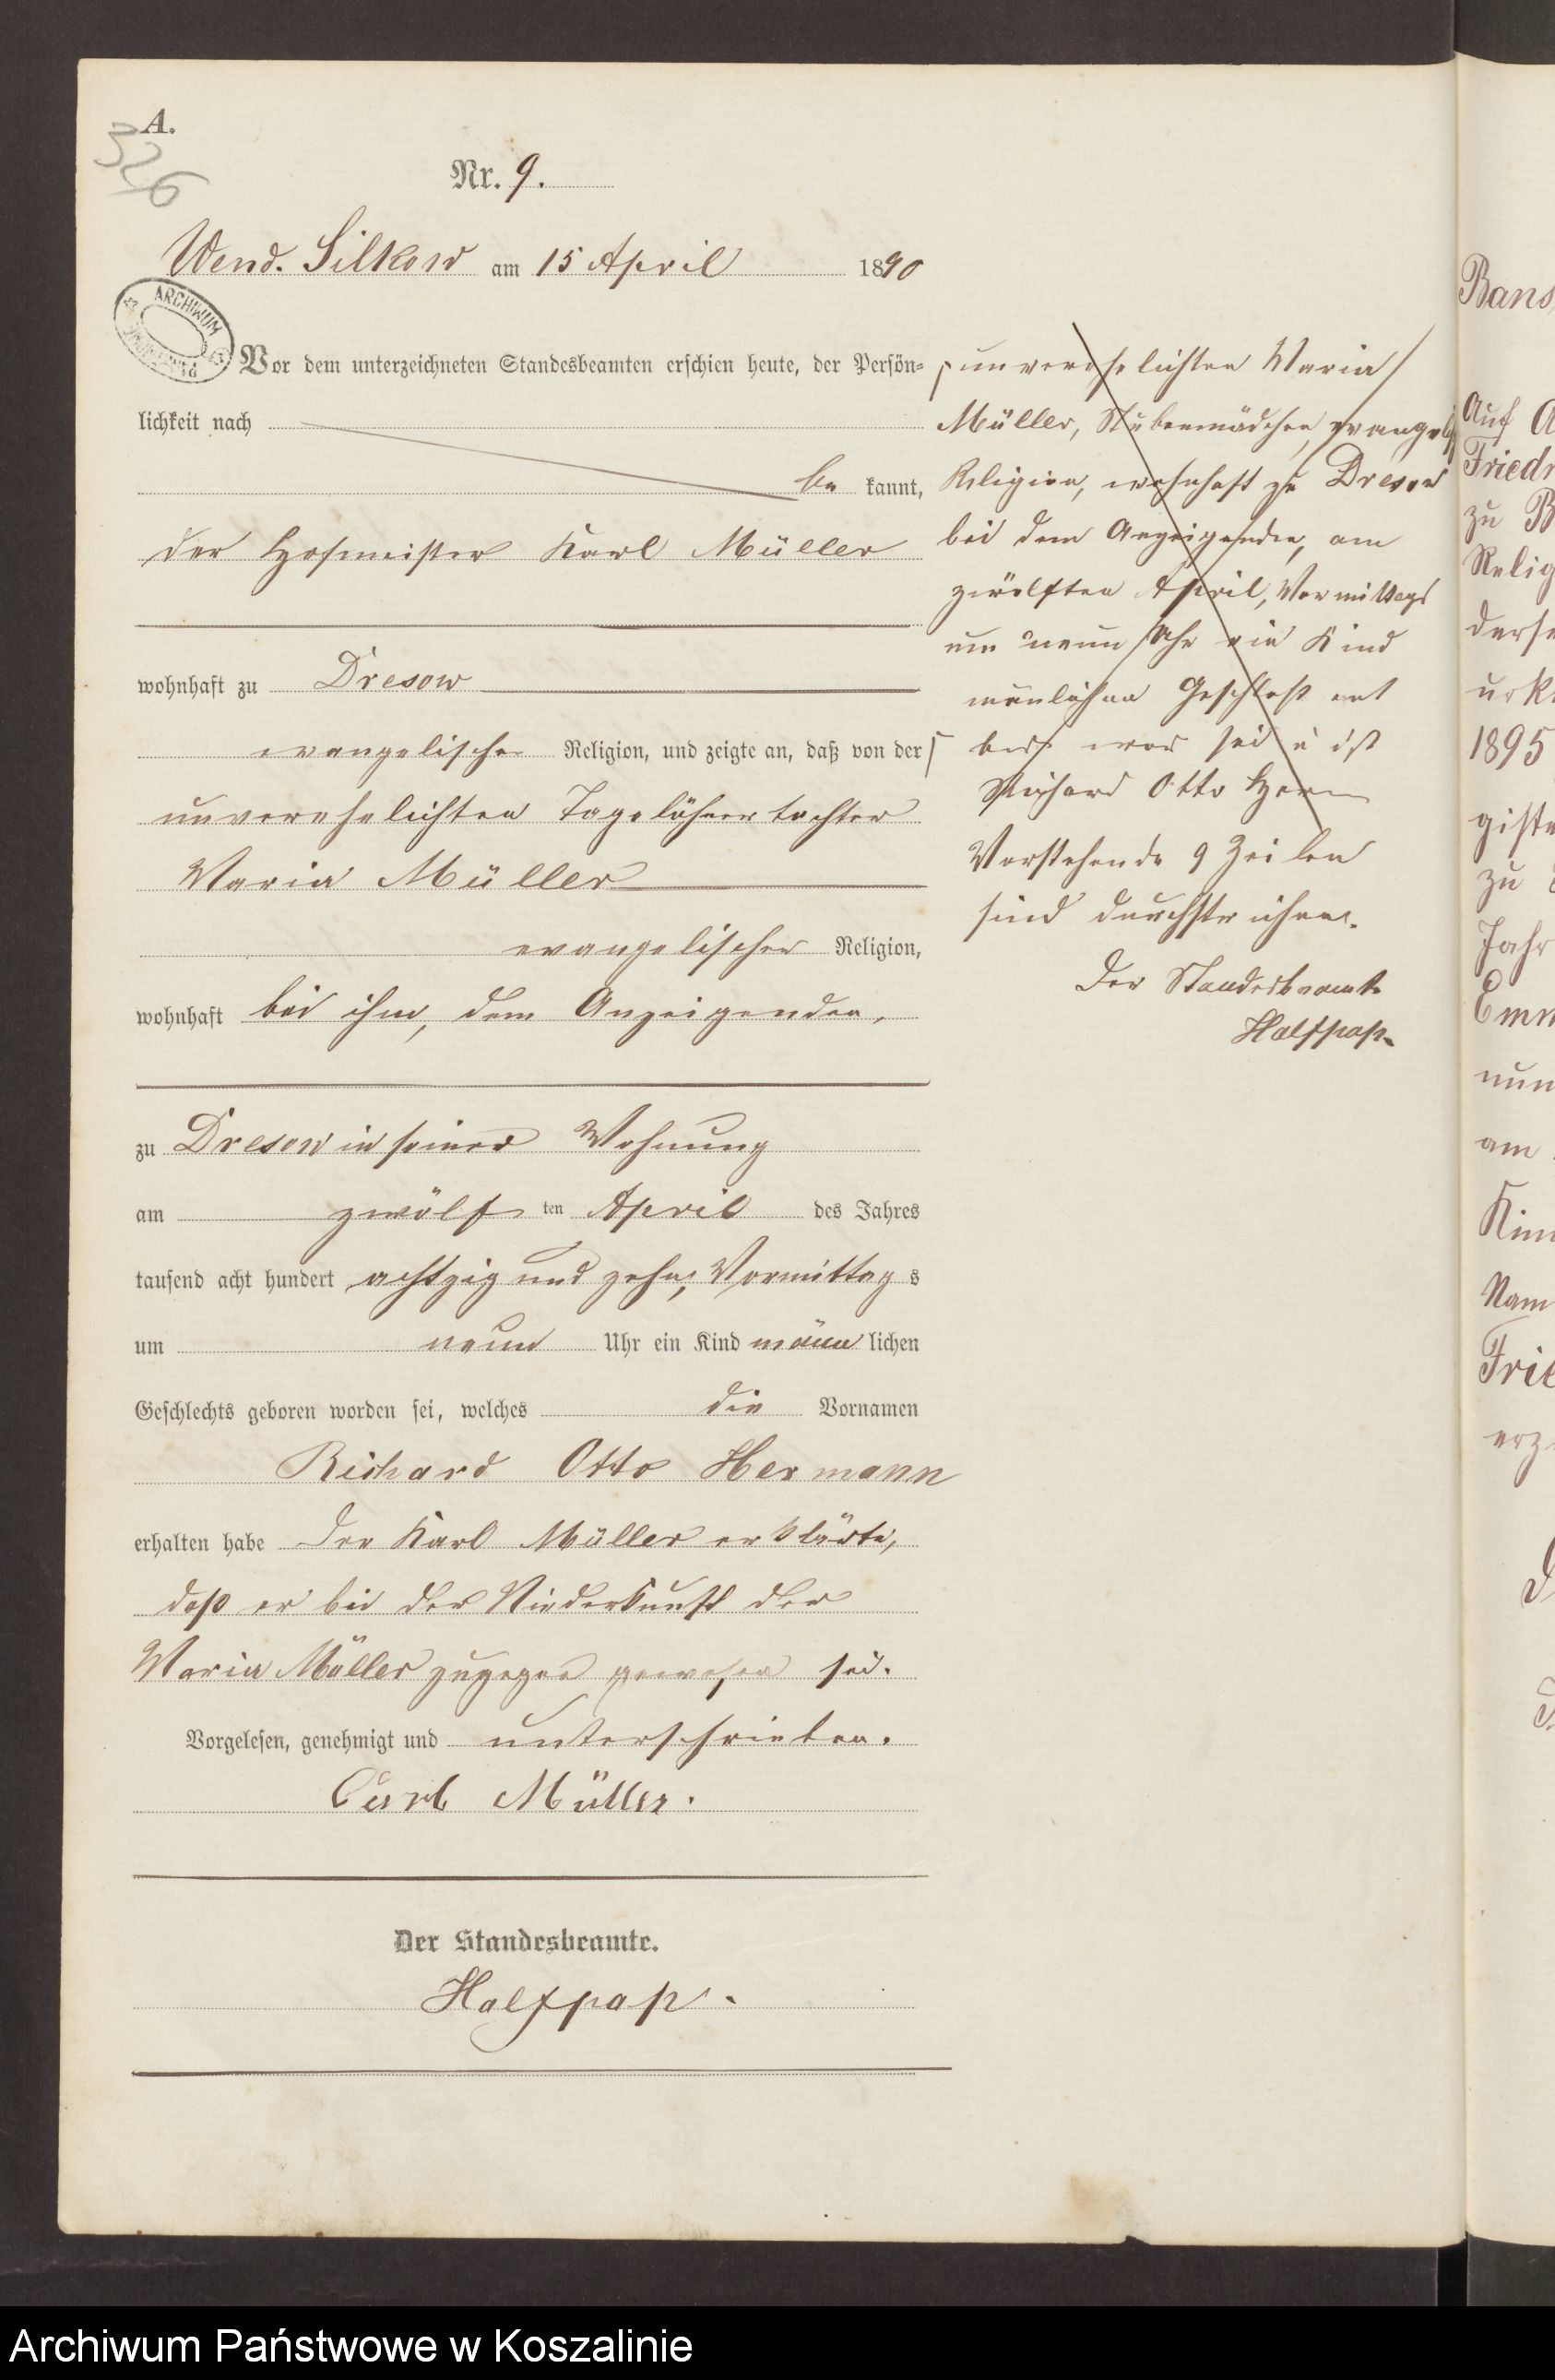 A.
326
Nr. 9.
Wend. Silkow am 15 April 1890
ARCHIWUM
Vor dem unterzeichneten Standesbeamten erschien heute, der Persön-
lichkeit nach
be kannt,
der Hofmeister Karl Müller
wohnhaft zu Dresow
evangelischer Religion, und zeigte an, daß von der
unverehelichten Tagelöhnertochter
Maria Müller
evangelischer Religion,
wohnhaft bei ihm, dem Anzeigenden,
zu Dresow in seiner Wohnung
am zwölf ten April des Jahres
tausend acht hundert achtzig und zehn, Vormittag s
um neun Uhr ein Kind männ lichen
Geschlechts geboren worden sei, welches die Vornamen
Richard Otto Hermann
erhalten habe Der Karl Müller erklärte,
daß er bei der Niederkunft der
Maria Müller zugegen gewesen sei.
Vorgelesen, genehmigt und unterschrieben.
Carl Müller.
Der Standesbeamte.
Halfpap.
unverehelichten Maria
Müller, Stubenmädchen, evangelisch
Religion, wohnhaft zu Dresow
bei dem Anzeigenden, am
zwölften April, Vormittags
um neun Uhr ein Kind
mänlichen Geschlecht
sei ist
Richard Otto Herm
Vorstehende 9 Zeilen
sind durchstrichen.
Der Standesbeamte
Halfpap.
Bans
Auf A
Friedr
zu B
Relig
derse
urk
1895
giste
zu
Jahr
Emm
nun
am
Kin
Nam
Frie
erz
Archiwum Państwowe w Koszalinie